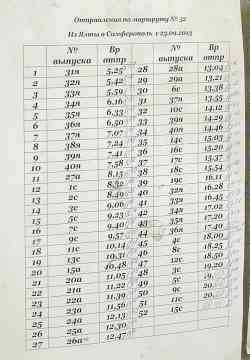 Отправления по маршруту № 52
Из Ялты в Симферополь с 25.09.2015
№ выпуска Вр отпр № выпуска Вр отпр
1 31я 5,25 28 28я 13,04
2 32я 5,42 29 29я 13,21
3 33я 5,59 30 6с 13,38
4 34я 6,16 31 37я 13,55
5 35я 6,33 32 10с 14,12
6 36я 6,50 33 39я 14,29
7 37я 7,07 34 40я 14,46
8 38я 7,24 35 14с 15,03
9 39я 7,41 36 16с 15,20
10 40я 7,58 37 17с 15,37
11 27а 8,15 38 18с 15,54
12 1с 8,32 39 31я
13 2с 8,49 40 32я 16,28
14 3с 9,06 41 33я 16,45
15 5с 9,23 42 34я 17,02
16 7с 9,40 43 35я 17,20
17 9с 9,57 44 36я 17,40
18 11с 10,14 45 4с 18,00
19 13с 10,31 46 8с 18,25
20 15а 10,48 47 12с 18,50
21 20а 11,05 48 3с 19,20
22 21а 11,22 49 5с
23 22а 11,39 50 9с
24 23а 11,56 51 11с
25 24а 12,13 52 15с
26 25а 12,30
27 26а 12,47